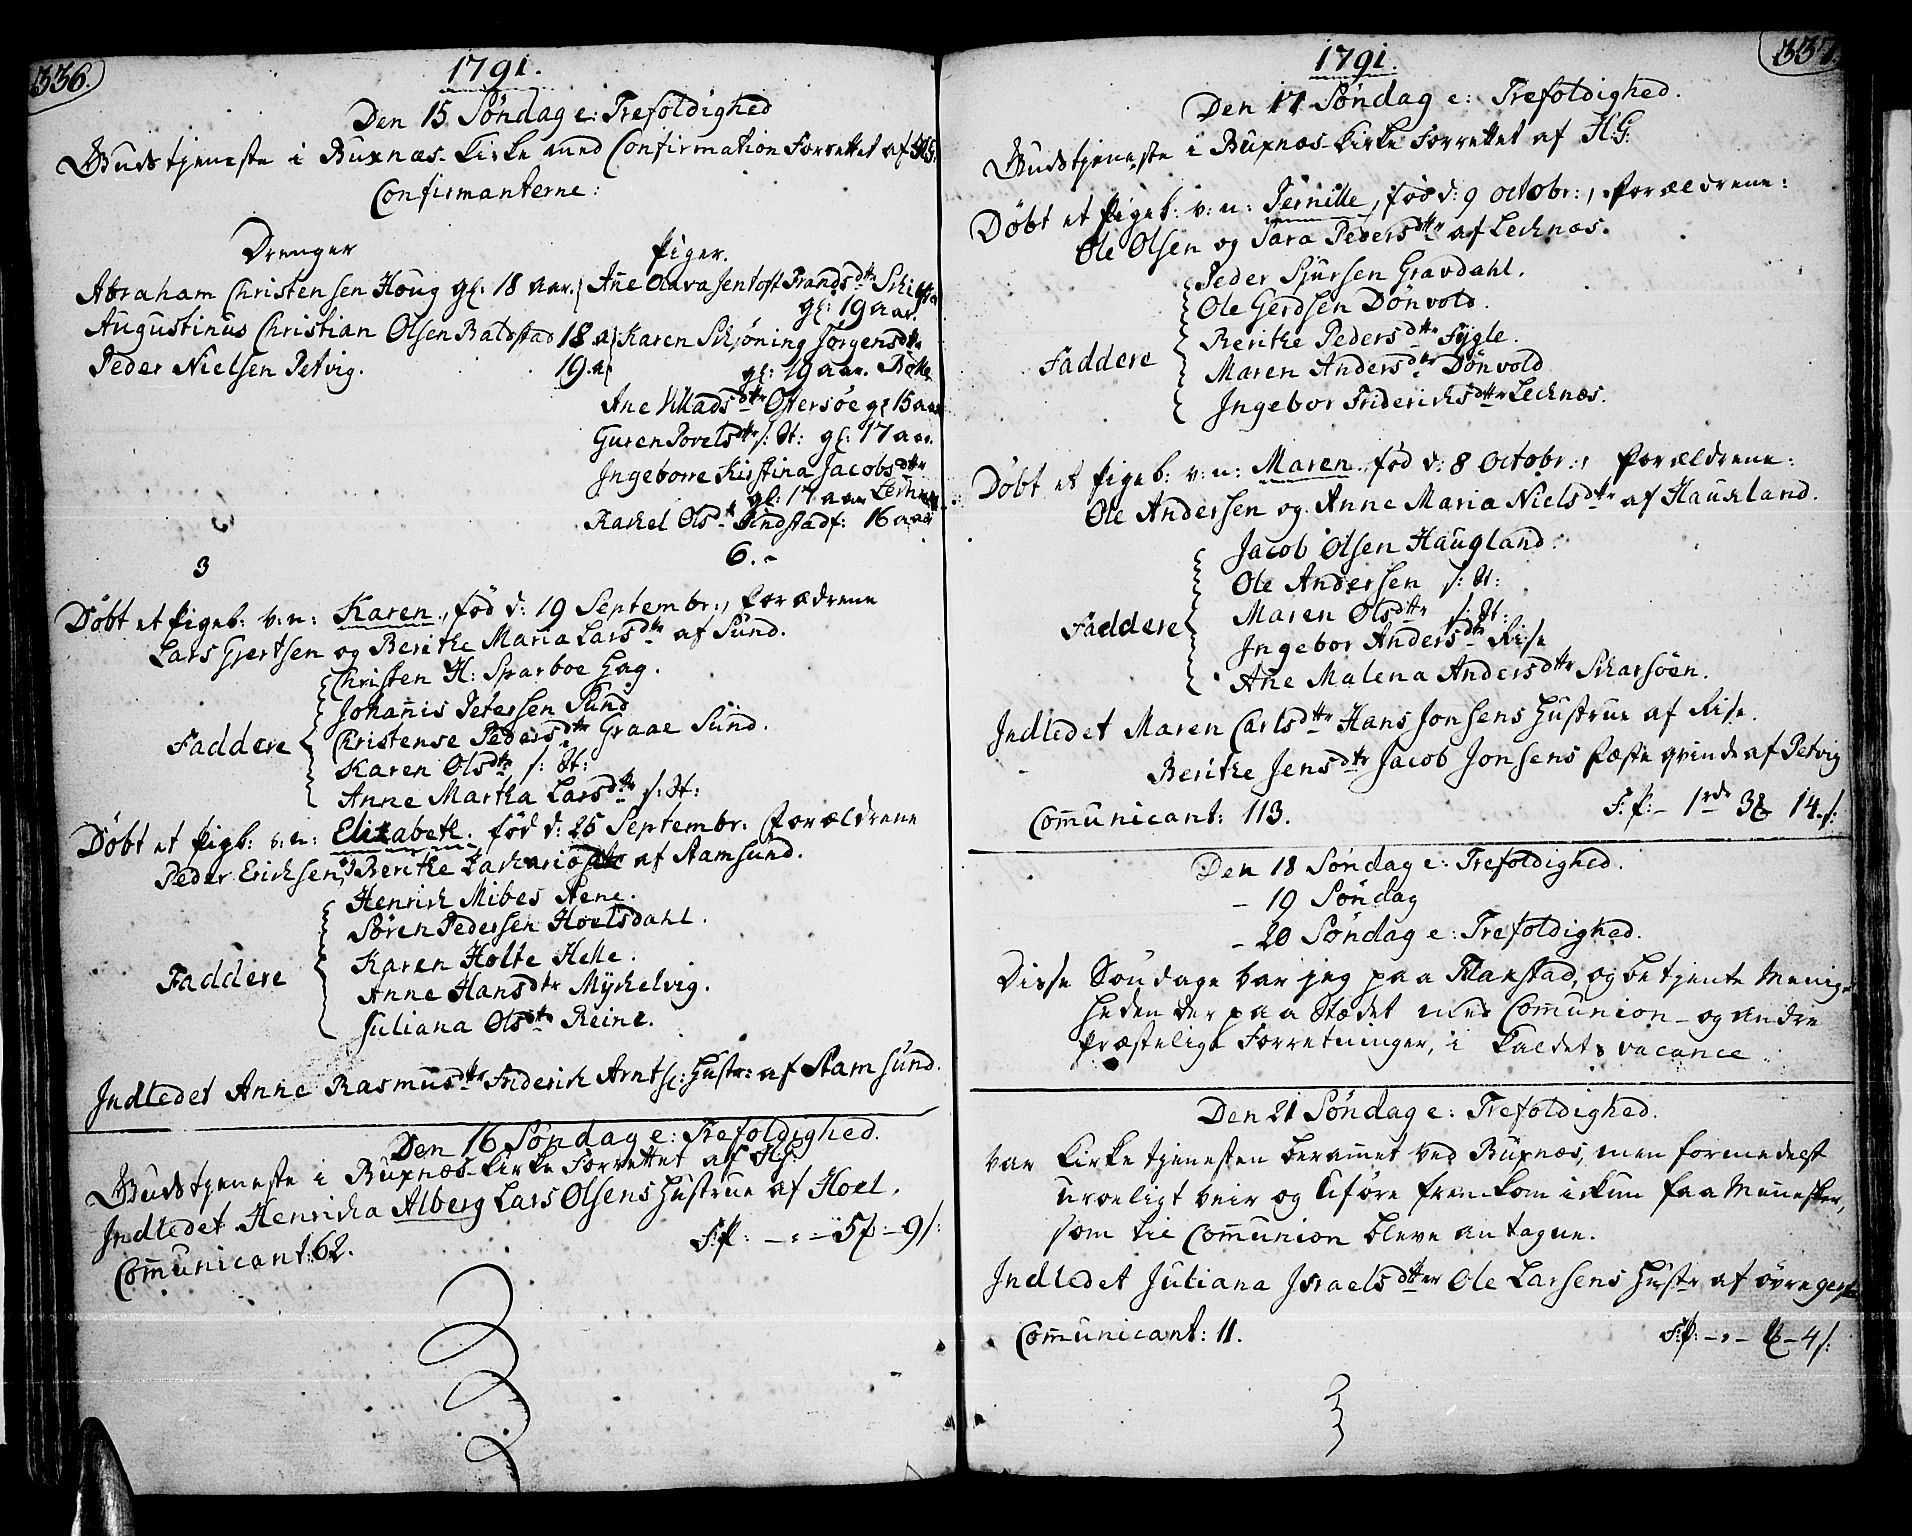 336.
1791.
Den 15 Søndag e: Trefoldighed
Gudstjeneste i Buxnæs Kirke med Confirmation Forrettet af H:G.
Confirmanterne:
Drenger
Abraham Christensen Houg gl: 18 aar.
Augustinus Christian Olsen Baldstad 18 a
Peder Nielsen Petvig. 19 a
3
Piger.
Ane Olava Sentoft Brandsdtr
gl: 19 aar.
Karen Schjøning Jørgensdtr
gl: 19 aar.
Ane Villadsdtr Ofersøe gl 15 aar
Guren Povelsdtr s: St: gl: 17 aar.
Ingeborre Kirstina Jacobsdtr
gl: 17 aar Lecknæs
Rachel Olsdtr 16 aar
6.-
Døbt et Pigeb: v: n: Karen, fød d: 19 Septembr:, Forældrene
Lars Gjertsen og Berithe Maria Larsdtr af Sund.
Faddere
Christen H: Sparboe Hag.
Johañis Petersen Sund
Christense Pedersdtr Graae Sund.
Karen Olsdtr s: St:
Anne Martha Larsdtr s: St:
Døbt et Pigb: v: n: Elizabeth. fød d: 25 Septembr. Forældrene
Peder Ericksen, Berithe Zachariædtr af Stamsund.
Faddere
Henrich Mibes Stene.
Søren Pedersen Hoelsdahl.
Karen Holte Helle.
Anne Hansdtr Myckelvig.
Juliana Olsdtr Reine.
Indledet Anne Rasmusdtr Friderich Arntss: Hustr: af Stamsund.
Den 16 Søndag e: Trefoldighed.
Gudstjeneste i Buxnæs Kirke Forrettet af H:G:
Indledet Henricha Alberg Lars Olsens Hustrue af Hoel.
Com̃unicant: 62.
F:P: - : - 5 - 9 s:
337.
1791.
Den 17 Søndag e: Trefoldighed.
Gudstjeneste i Buxnæs Kirke Forrettet af H:G:
Døbt et Pigeb: v: n: Pernille, fød d: 9 Octobr:, Forældrene:
Ole Olsen og Sara Pedersdtr af Lecknæs.
Faddere
Peder Sjursen Gravdahl.
Ole Gerdsen Dønvold.
Berithe Pedersdtr Fygle.
Maren Andersdtr Dønvold
Ingebor Friderichsdtr Lecknæs.
Døbt et Pigeb: v: n: Maren, fød d: 8 Octobr:, Forældrene:
Ole Andersen og Anne Maria Nielsdtr af Haukland.
Faddere
Jacob Olsen Haugland.
Ole Andersen s: St:
Maren Olsdtr s: St:
Ingebor Andersdtr Rise
Ane Malena Andersdtr Skarsøen.
Indledet Maren Carlsdtr Hans Jonsens Hustrue af Rise.
Berithe Jensdtr Jacob Jonsens Fæste qvinde af Petvig
Com̃unicant: 113.
F:P: - 1 rdr 3 14 s:
Den 18 Søndag e: Trefoldighed.
- 19 Søndag
- 20 Søndag e: Trefoldighed.
Disse Søndage var jeg paa Flakstad, og betjente Menig-
heden der paa Stædet med Com̃union - og andre
Præstelige Forretninger, i Kaldets vacance
Den 21 Søndag e: Trefoldighed.
var Kirketjenesten beram̃et ved Buxnæs, men formedelst
uroeligt veir og Uføre fremkom ickun faa Mennesker,
som til Com̃union bleve antagne.
Indledet Juliana Israelsdtter Ole Larsens Hustr af
Com̃unicant: 11.
F:P: - , - - 4 s: